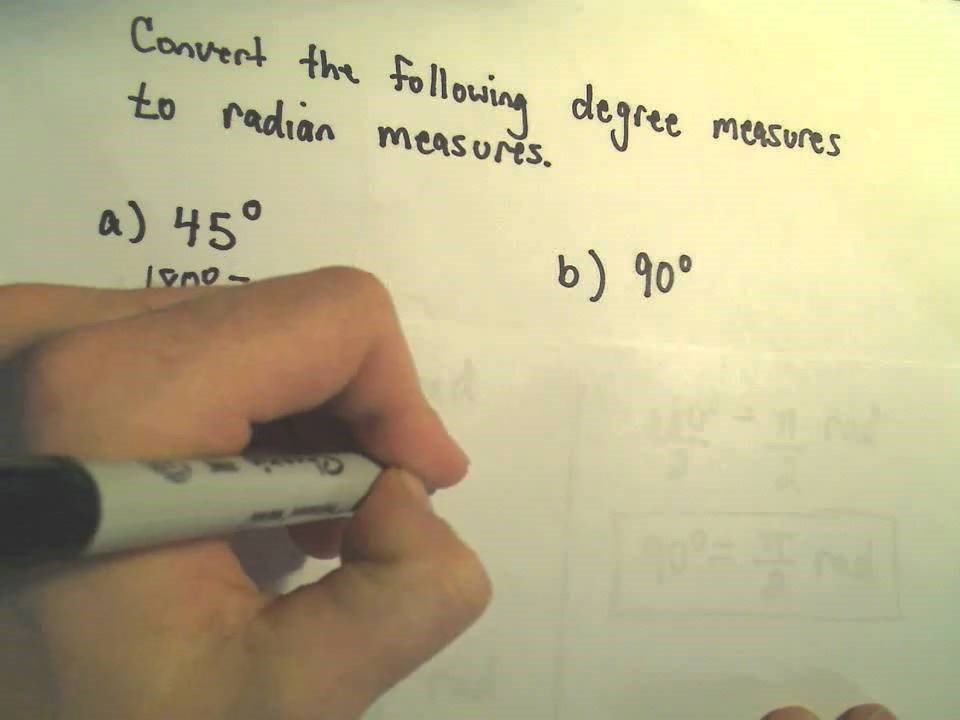 Convert the following degree measures
to radian measures.
a) 45°
b) 90°
180° =